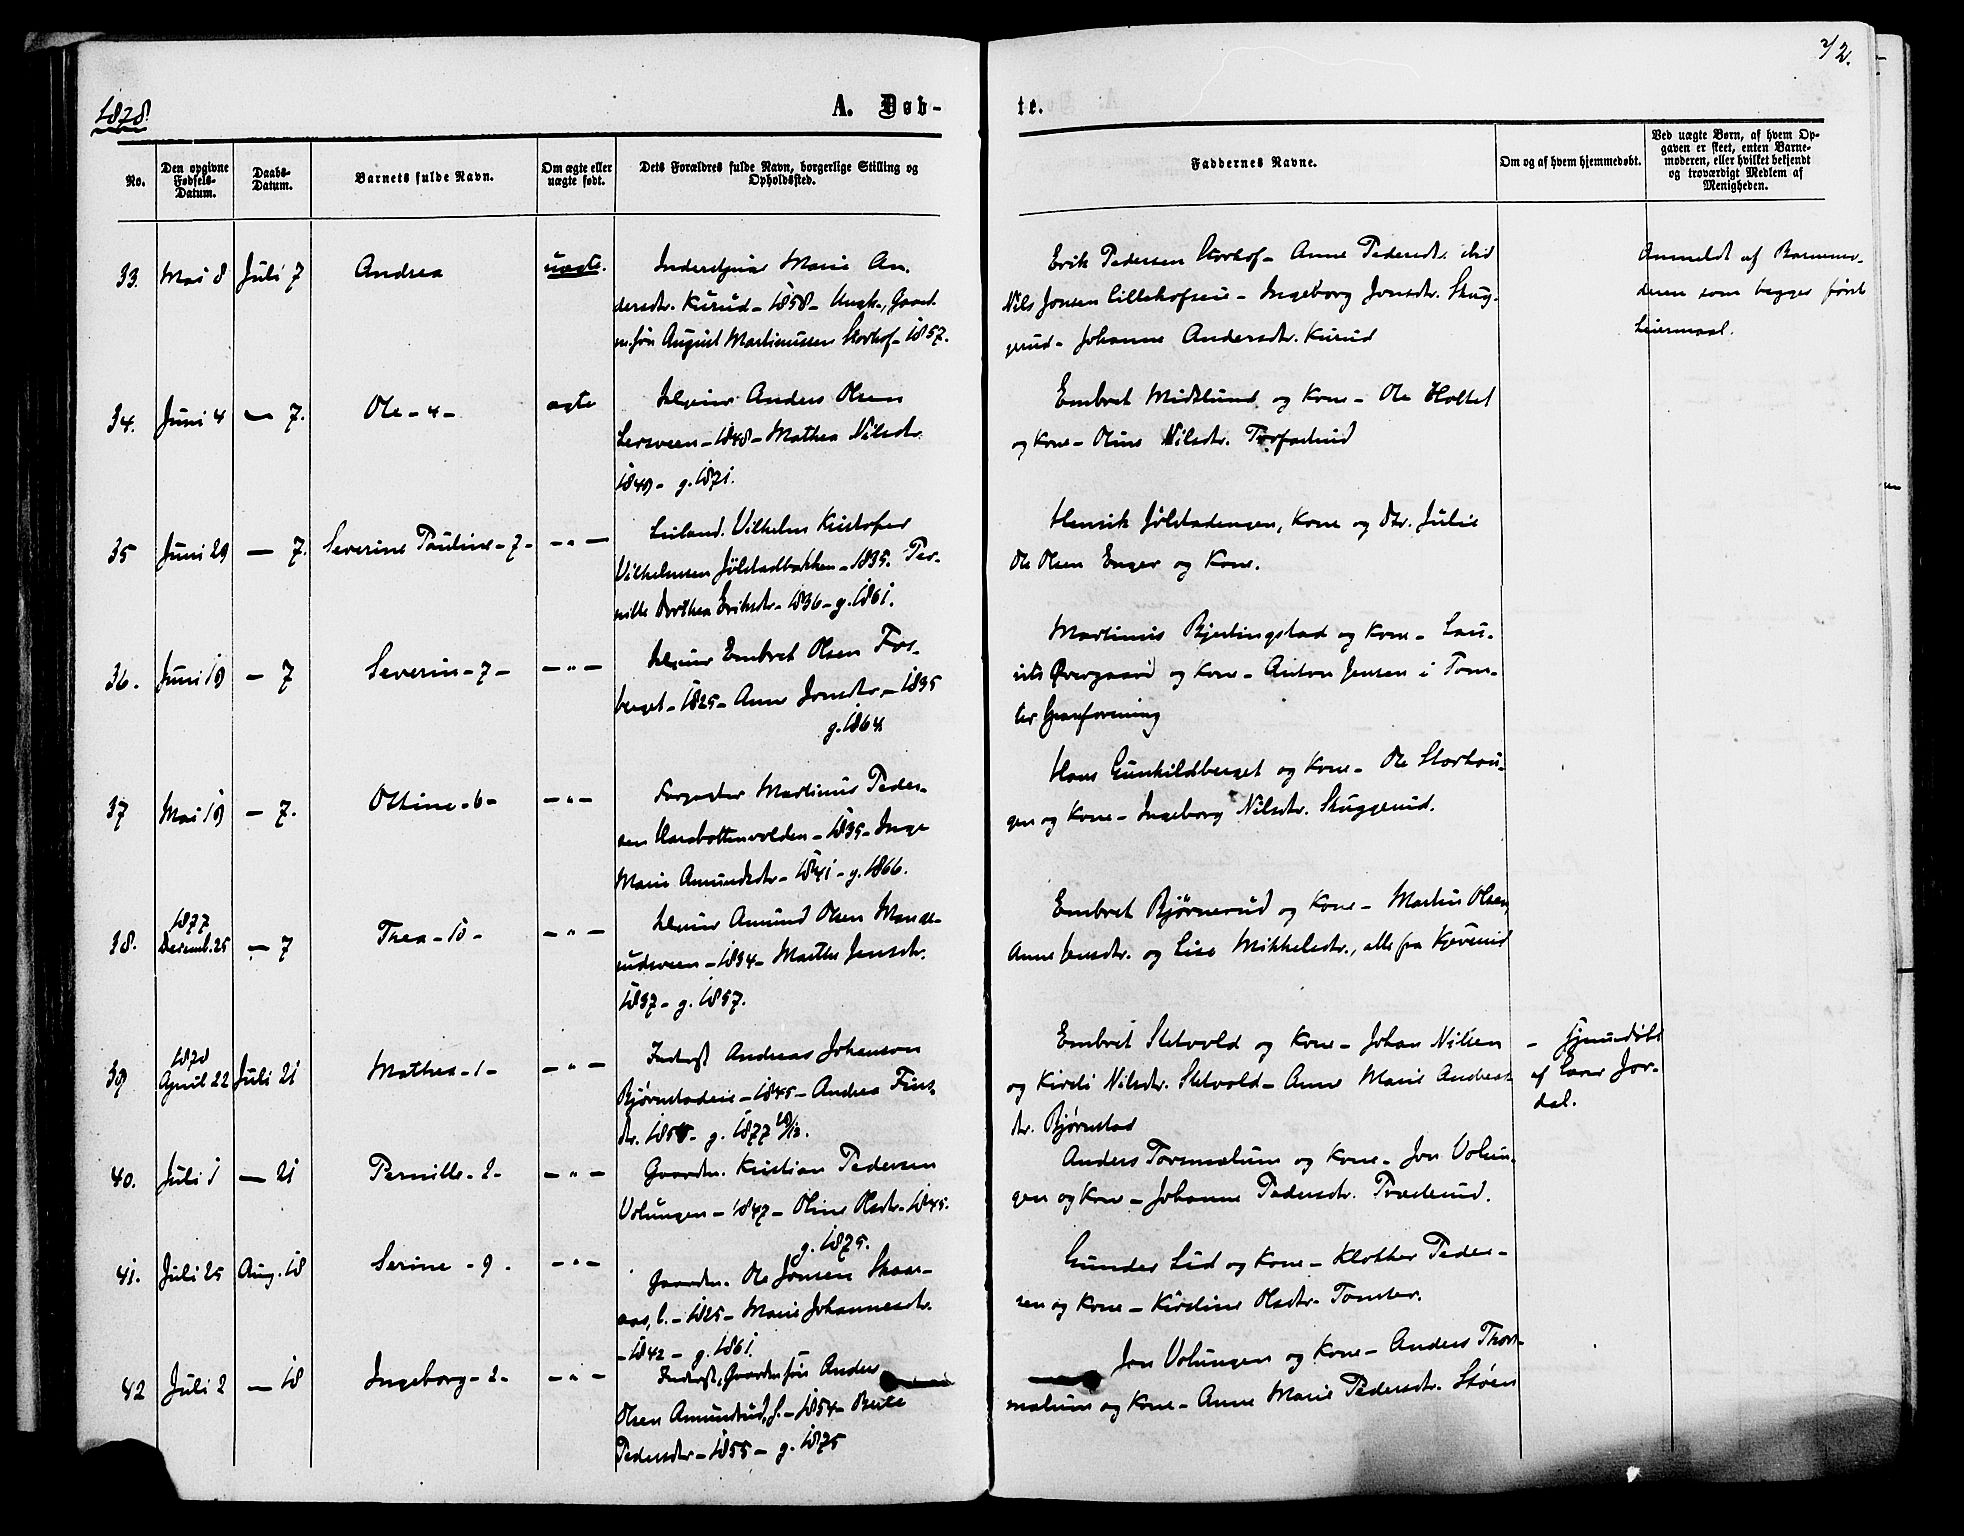 1878.
A. Døb-
te.
2/2.
No.
Den opgivne Fødsels-Datum.
Daabs-Datum.
Barnets fulde Navn.
Om ægte eller uægte født.
Dets Forældres fulde Navn, borgerlige Stilling og Opholdssted.
Faddernes Navne.
Om og af hvem hjemmedøbt.
Ved uægte Børn, af hvem Op-
gaven er skeet, enten Barne-
moderen, eller hvilket bekjendt
og troværdigt Medlem af
Menigheden.
33. Mai 8 Juli 7 Andrea uægte.
Marie An-
dersdtr. Kurud - 1858 - Ungk., Gaard-
m.søn August Martinussen Storhof - 1857.
Erik Pedersen Storhof - Anne Pedersdtr. ibid
Nils Jonsen Lillehofseie - Ingeborg Jonsdtr. Skug-
gerud - Johanne Andersdtr. Kurud
Anmeldt af Barnemo-
deren som begges første
Leiermaal.
34. Juni 4 — 7. Ole - 4 - ægte
Selveier Anders Olsen
Lersveen - 1848 - Mathea Nilsdtr.
1849 - g. 1871.
Embret Midtlund og Kone - Ole Holtet
og Kone - Oline Nilsdtr.
35 Juni 29 — 7. Severine Pauline - 7 - - " -
Leiland. Vilhelm Kristofer
Vilhelmsen Jølstadbakken - 1835. Per-
nille Dorthea Eriksdtr - 1836 - g. 1861.
Henrik Jølstadengen, Kone og dtr. Julie
Ole Olsen Enger og Kone.
36. Juni 19 — 7 Severin - 7 - - " -
Selveier Embret Olsen Fos-
berget - 1825 - Anne Jonsdtr. - 1835
g. 1864.
Martinus Bjerlingstad og Kone - Lau-
rits Øvergaard og Kone - Anton Jensen i Tom-
ter
37 Mai 19 — 7. Oltine - 6 - - " -
Martinus Peder-
sen - 1835 - Inge
Marie Amundsdtr - 1841 - g. 1866.
Hans Gunhildberget og Kone - Ole Storhau-
gen og Kone - Ingeborg Nilsdtr. Skuggerud.
38. 1877 Decemb. 25 — 7 Thea - 10 - - " -
Selveier Amund Olsen
- 1834 - Marthe Jensdtr.
1837 - g. 1857.
Embret Bjørnerud og Kone - Martin Olsen,
Anne Jensdtr. og Lise Mikkelsdtr., alle fra Kjeverud
39 1878 April 22 Juli 21 Mathea - 1 - - " -
Inderst Andreas Johansen
Bjørnstadeie - 1845 - Andrea Finn-
dtr. - g. 1877
Embret Sletvold og Kone - Johan Nilsen
og Kirsti Nilsdtr. Sletvold - Anne Marie Anders-
dtr. Bjørnstad
- Hjemdøbt
af Lars Jor-
dal.
40. Juli 1 — 21 Pernille - 2 - - " -
Gaardm. Kristian Pedersen
Volungen - 1847 - Oline Olsdtr. - 1845.
g. 1875.
Anders Torsmælum og Kone - Jon Volun-
gen og Kone - Johanne Pedersdtr. Træterud.
41. Juli 25 Aug. 18 Serine - 9 - - " -
Gaardm. Ole Jonsen Skaar-
aas, l. - 1825 - Marie Johannesdtr.
- 1842 - g. 1861.
Gunder Lid og Kone - Klother Peder-
sen og Kone - Kirstine Olsdtr. Tomter.
42 Juli 2 — 18 Ingeborg - 2 - - " -
Inderst, Gaardm.søn Anders
Olsen Amundrud, s. - 1854 - Berte
Pedersdtr - 1855 - g. 1875
Jon Volungen og Kone - Anders Thors-
mælum og Kone - Anne Marie Pedersdtr. Støen